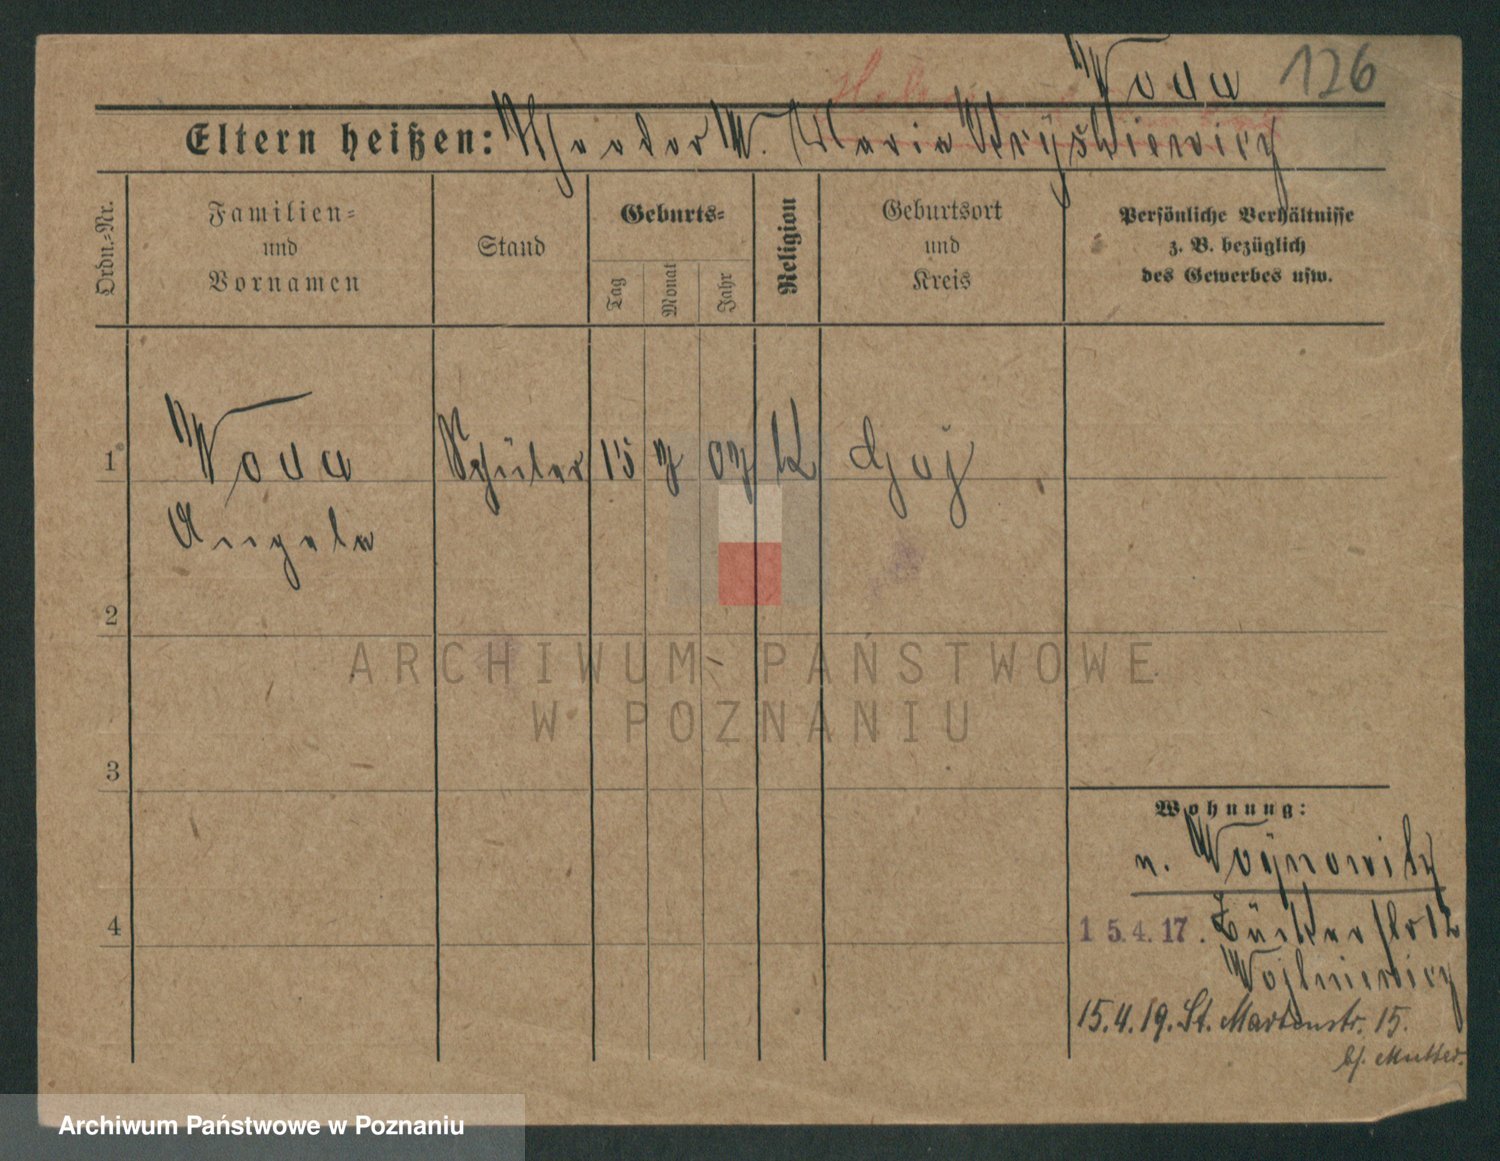 Woda 126
Eltern heißen: Theodor W. Maria Kryszkiewicz
Ordn.-Nr.
Familien-
und
Vornamen
Stand
Geburts-
Tag
Monat
Jahr
Religion
Geburtsort
und
Kreis
Persönliche Verhältnisse
z. B. bezüglich
des Gewerbes usw.
1 Woda Schüler 15 7 07 K
Angela
2
3
4
Wohnung:
n. Woynowitz
15.4.17. Bäckerstr 12
15.4.19. St. Martinstr. 15.
b/. Mutter.
ARCHIWUM PAŃSTWOWE
W POZNANIU
Archiwum Państwowe w Poznaniu